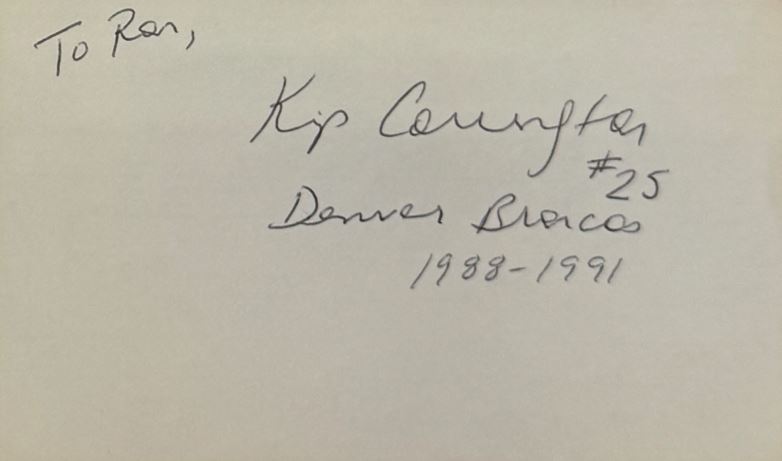 To Ron,
Kip Corrington
#25
Denver Broncos
1988-1991